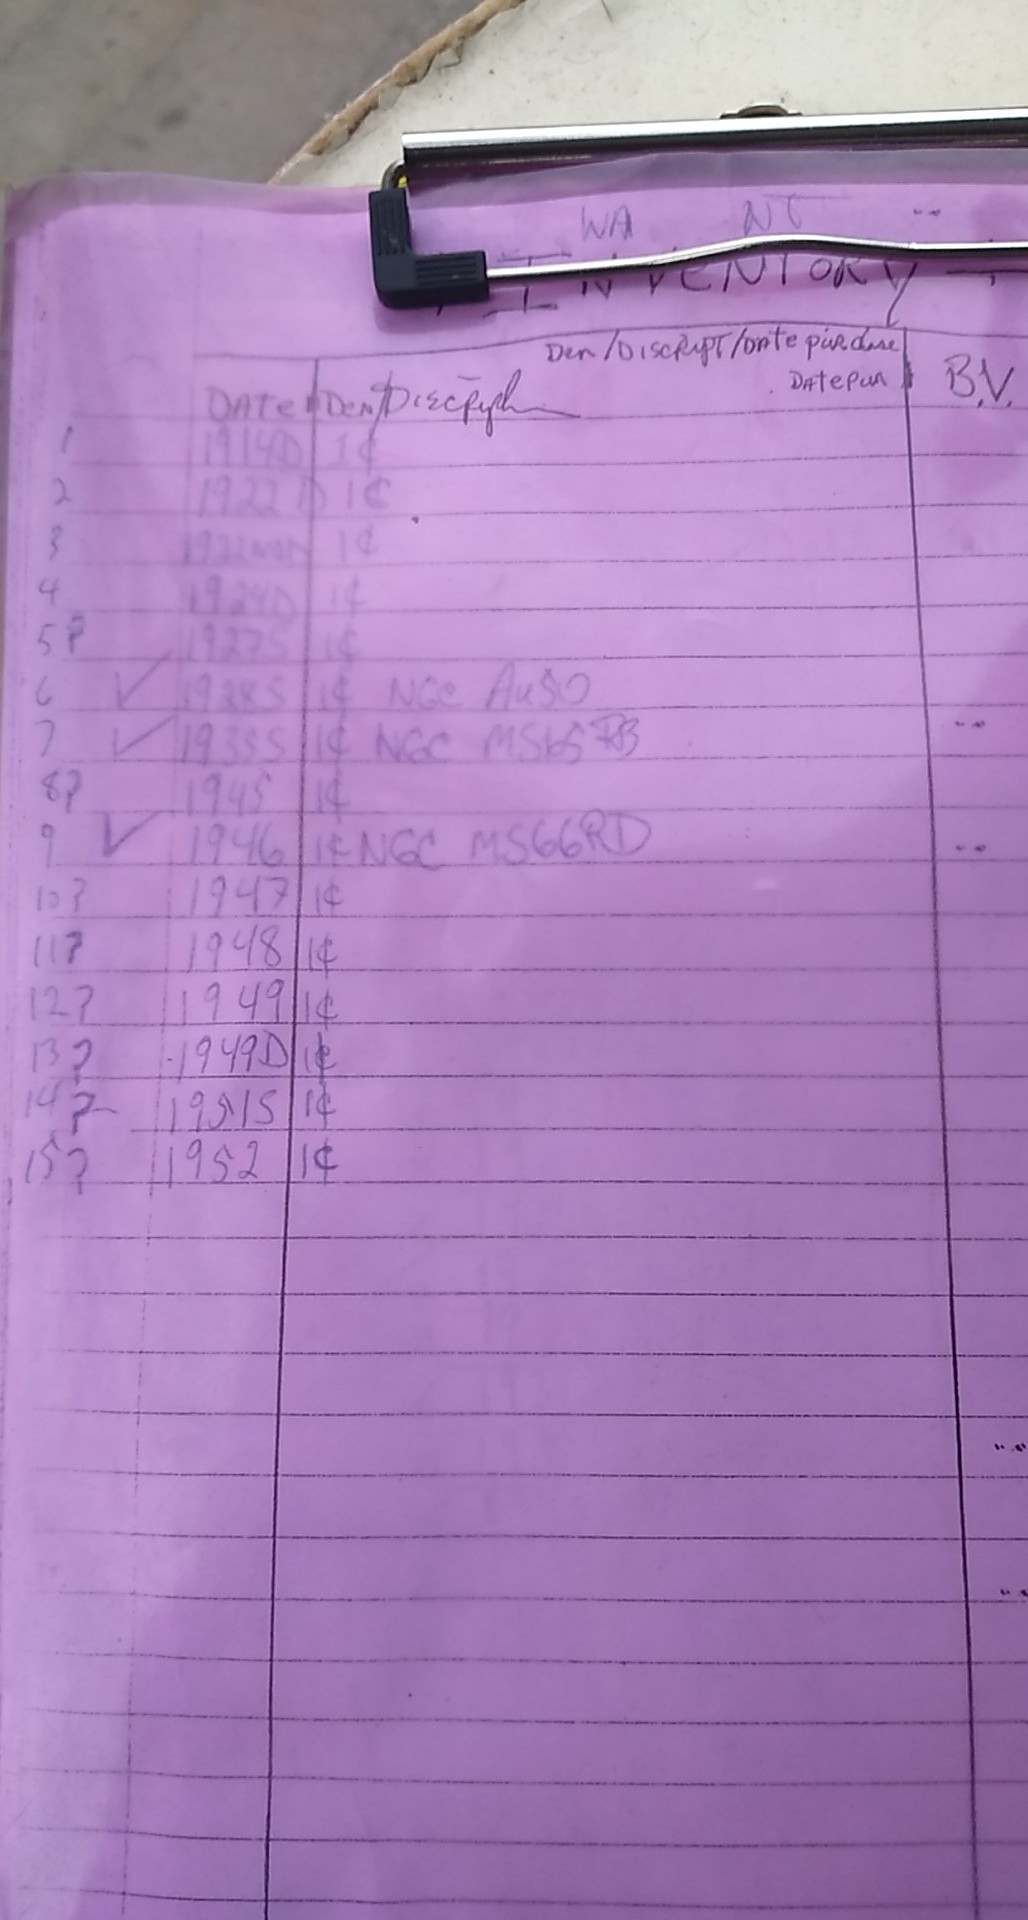 WA NT
INVENTORY
Den/DISCRIPT/DATE purchase
DATE PUR B.V.
DATE Den/
1 1914D 1¢
2 1922 D 1¢
3 1922 1¢
4 1924D 1¢
5? 1927S 1¢
6 ✓ 1928S 1¢ NGC AU50
7 ✓ 1935S 1¢ NGC MS65RB
8? 1945 1¢
9 ✓ 1946 1¢ NGC MS66RD
10? 1947 1¢
11? 1948 1¢
12? 1949 1¢
13? 1949D 1¢
14? 1951S 1¢
15? 1952 1¢